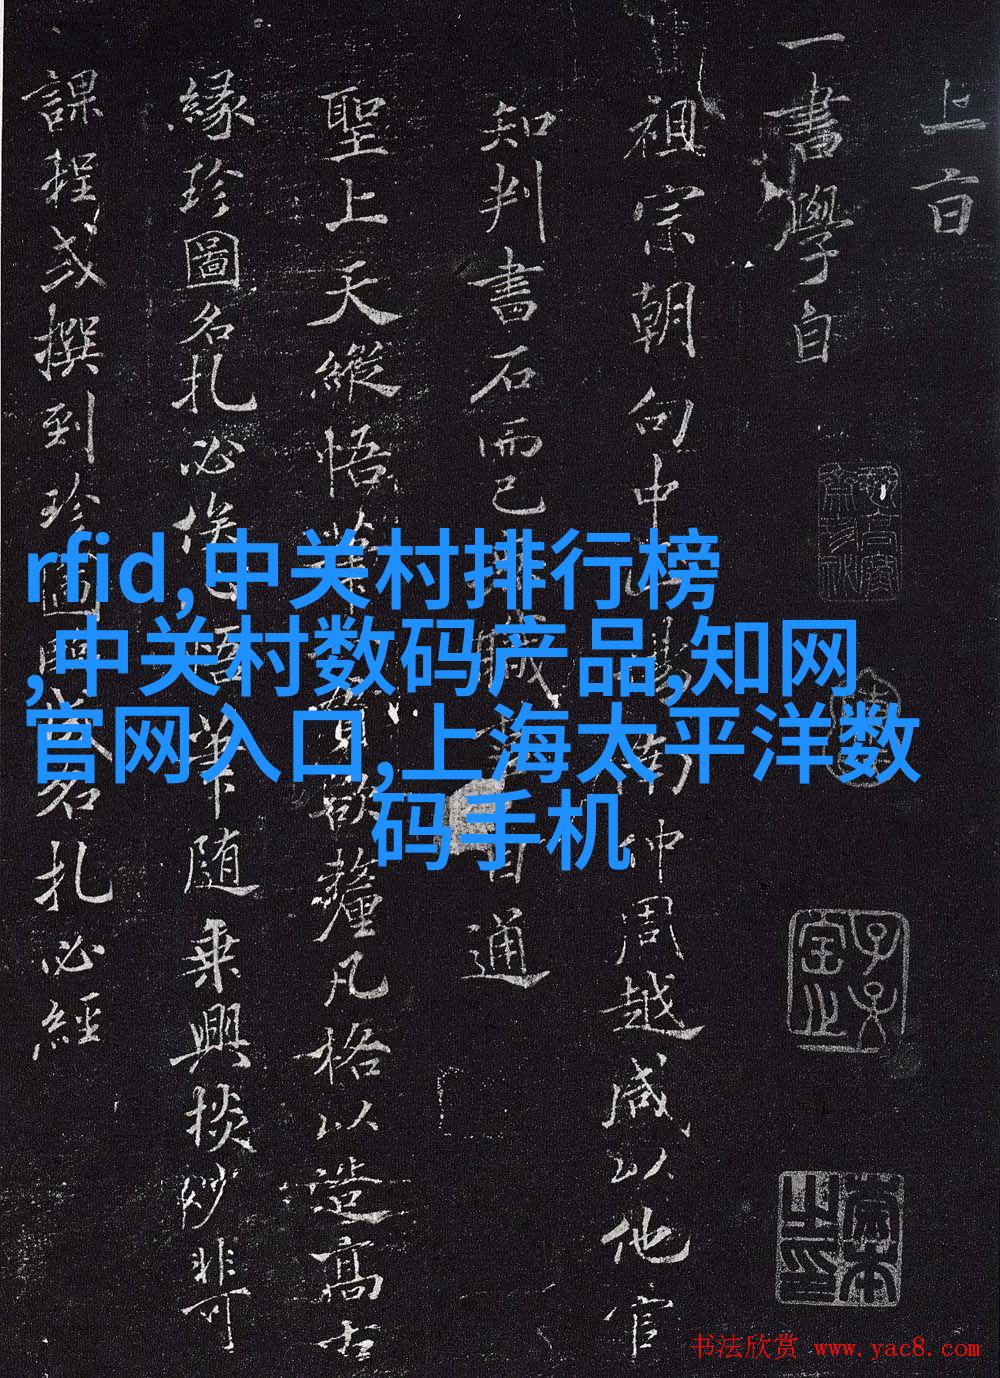 上
一書學自
祖宗朝中南仲周越咸以他官
知判書石而已職書自通
聖上天縱悟欲釐凡格以造高古
緣珍圖名札必俟筆随乗興掞妙非可
課程或撰到珍圖名札必經
rfid,中关村排行榜
,中关村数码产品,知网
官网入口,上海太平洋数
码手机
书法欣赏 www.yac8.com